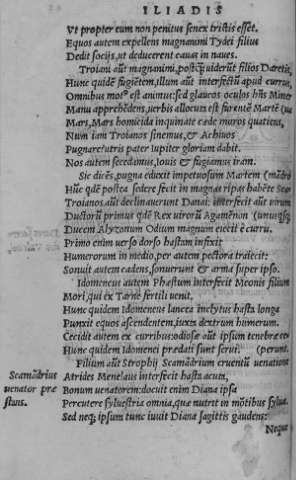 ILIADIS
Vt propter eum non penitus senex tristis esset.
Equos autem expellens magnanimi Tydei filius
Dedit socijs, ut deducerent cauas in naues.
Troiani aūt magnanimi, postq̃ uiderūt filios Daretis,
Hunc quidē fugiētem, illum aūt interfectū apud currus,
Omnibus motᵒ est animus: sed glaucos oculos hñs Miner
Manu apprehēdens, uerbis allocuta est furentē Martē
Mars, Mars homicida inquinate cæde muros quatiens,
Num iam Troianos sinemus, & Achiuos
Pugnare? utris pater Iupiter gloriam dabit.
Nos autem secedamus, Iouis & fugiamus iram.
Sic dicēs, pugna eduxit impetuosum Martem
Hūc qdē postea sedere fecit in magnas ripas habēte
Troianos aūt declinauerunt Danai: interfecit aūt uirum
Ductorū primus qdē Rex uirorū Agamēnon (unusqsq;
Ducem Alyzonum Odium magnum eiecit è curru.
Primo enim uerso dorso hastam infixit
Humerorum in medio, per autem pectora traiecit:
Sonuit autem cadens, sonuerunt & arma super ipso.
Idomeneus autem Phæstum interfecit Meonis filium
Mori, qui ex Tarne fertili uenit,
Hunc quidem Idomeneus lancea inclytus hasta longa
Punxit equos ascendentem, iuxta dextrum humerum.
Cecidit autem ex curribus: odiosæ aūt ipsum tenebræ ce-
Hunc quidem Idomenei prædati sunt serui: (perunt.
Filium aūt Strophij Scamādrium cruentū uenationis
Scamādrius Atrides Menelaus interfecit hasta acuta,
uenator præ Bonum uenatorem: docuit enim Diana ipsa
stans. Percutere syluestria omnia, quæ nutrit in mōtibus sylua.
Sed neq; ipsum tunc iuuit Diana sagittis gaudens:
Neque